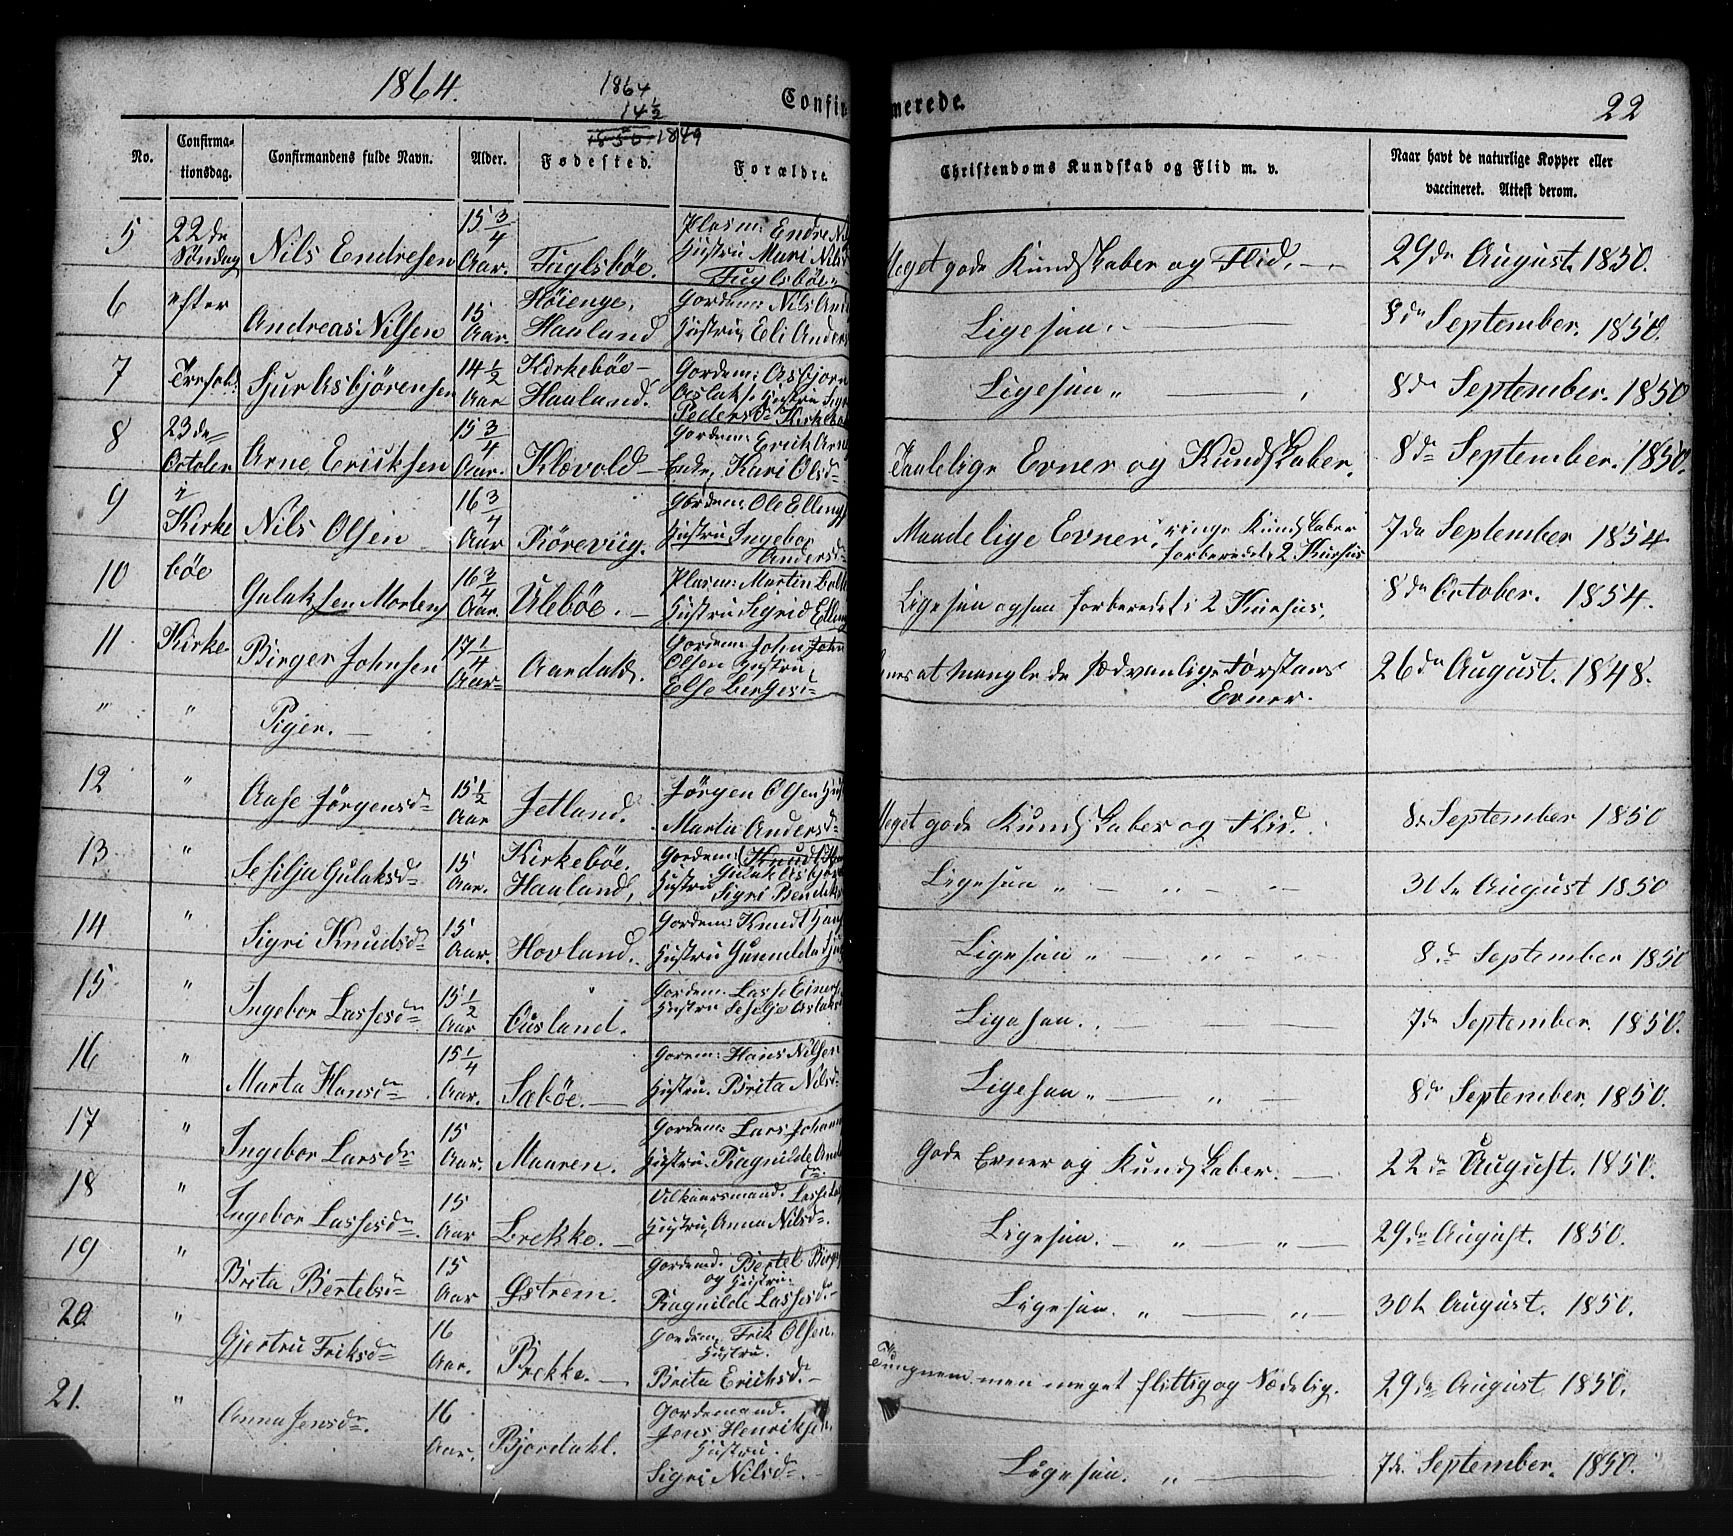 1864.
1864
14 1/2
1850 1849
Confirmerede.
22
No.
Confirmationsdag.
Confirmandens fulde Navn.
Alder.
Fødested.
Forældre.
Christendoms Kundskab og Flid m. v.
Naar havt de naturlige Kopper eller
vaccineret. Attest derom.
5 22de Søndag Nils Endresen 15 3/4 Aar. Fuglsbøe. Plasm: Endre Nil Hustru Mari Nils Fuglsbøe. Meget gode Kundskaber og Flid. 29de August 1850.
6 efter Andreas Nilsen 15 Aar. Høienge, Haaland Gordem: Nils And Hustru Eli Anders Ligesaa. 8de September. 1850.
7 Sjur Asbjörensen 14 1/2 Aar Kirkebøe- Haaland. Gordem: Asbjorn Aslaks. Hustru Pedersd Kirkebø Ligesaa " 8de September. 1850
8 23de October Arne Eriksen 15 3/4 Aar. Klævold Gordem: Erick Arn Kari Olsd Taalelige Evner og Kundskaber. 8de September. 1850.
9 i Kirke Nils Olsen 16 3/4 Aar Röreviig. Gordem: Ole Elling Hustru Ingebor Andersd Maadelige Evner, ringe Kundskaber forberedet i 2 Kursus 7de September 1854
10 bøe Gulaksen Mortens 16 3/4 Aar. Ulebøe. Plasm: Martin Hustru Sigrid Elling Ligesaa ogsaa forberedet i 2 Kursus. 8de October. 1854.
11 Kirke Birger Johnsen 17 1/4 Aar Aardal. Gordem: John John Olsen Hustru Else at mangle de sædvanlige Forstans Evner. 26de August. 1848.
" " Piger.
12 " Aase Jörgensd 15 1/2 Aar Jetland. Jörgen Olsen Hust Marta Andersd Meget gode Kundskaber og Flid. 8de September 1850
13 " Sesilja Gulaksd 15 Aar. Kirkebøe Haaland, Gordem: Knudt Gulak Asbjör Hustru Sigri Bendiks Ligesaa " 31te August 1850
14 " Sigri Knudsd 15 Aar. Hovland. Gordem: Knudt Hans Hustru Gunnilda Ligesaa " 8de September 1850
15 " Ingebor Lassesd 15 1/2 Aar Ousland. Gordem: Lasse Einers Hustru Sesilje Aslaks Ligesaa. 7de September. 1850.
16 " Marta Hansd 15 1/4 Aar. Sæbøe. Gorem: Hans Nilsen Hustru. Brita Nilsd Ligesaa " 8de September. 1850.
17 " Ingebor Larsd 15 Aar. Maaren. Gordem: Lars Johann Hustru. Ragnilde And Gode Evner og Kundskaber. 22de August. 1850.
18 " Ingebor Lassesd 15 Aar Brekke. Vilkaarsmand. Lasse Hustru, Anna Nilsd. Ligesaa. 29de August. 1850.
19 " Brita Bertelsd 15 Aar Østrem. Gordemd. Bertel Birg og Hustru. Ragnilde Lassesd. Ligesaa. " 30te August. 1850.
20 " Gjertru Eriksd 16 Aar. Brekke. Gordem: Erik Olsen. Hustru. Brita Ericksd. Tungnem men meget flittig og Sædelig. 29de August 1850.
21. " Anna Jensd 16 Aar. Bjordahl. Gordemand. Jens Henriksen. Hustru. Sigri Nilsd. Ligesaa. " 7de September. 1850.